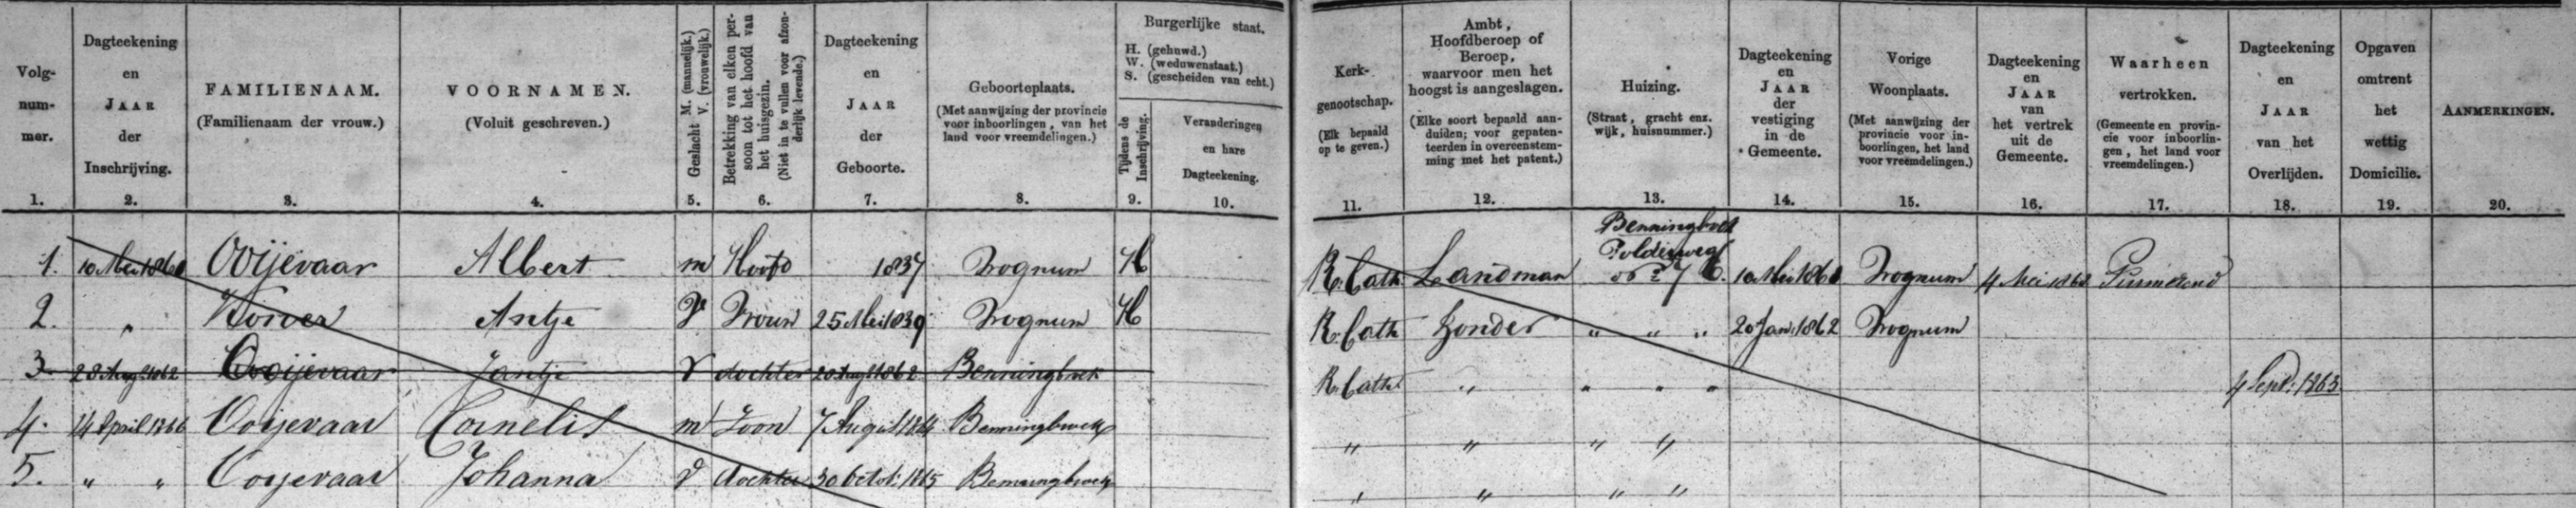 Volg-
num-
mer.
1.
Dagteekening
en
JAAR
der
Inschrijving.
2.
FAMILIENAAM.
(Familienaam der vrouw.)
3.
VOORNAMEN.
(Voluit geschreven.)
4.
Geslacht M. (mannelijk.)
V. (vrouwelijk.)
5.
Betrekking van elken per-
soon tot het hoofd van
het huisgezin.
(Niet in te vullen voor afzon-
derlijk levende.)
6.
Dagteekening
en
JAAR
der
Geboorte.
7.
Geboorteplaats.
(Met aanwijzing der provincie
voor inboorlingen, van het
land voor vreemdelingen.)
8.
Burgerlijke staat.
H. (gehuwd.)
W. (weduwenstaat.)
S. (gescheiden van echt.)
Tijdens de
Inschrijving.
9.
Veranderingen
en hare
Dagteekening.
10.
Kerk-
genootschap.
(Elk bepaald
op te geven.)
11.
Ambt,
Hoofdberoep of
Beroep,
waarvoor men het
hoogst is aangeslagen.
(Elke soort bepaald aan-
duiden; voor gepaten-
teerden in overeenstem-
ming met het patent.)
12.
Huizing.
(Straat, gracht enz.
wijk, huisnummer.)
13.
Dagteekening
en
JAAR
der
vestiging
in de
Gemeente.
14.
Vorige
Woonplaats.
(Met aanwijzing der
provincie voor in-
boorlingen, het land
voor vreemdelingen.)
15.
Dagteekening
en
JAAR
van
het vertrek
uit de
Gemeente.
16.
Waarheen
vertrokken.
(Gemeente en provin-
cie voor inboorlin-
gen, het land voor
vreemdelingen.)
17.
Dagteekening
en
JAAR
van het
Overlijden.
18.
Opgaven
omtrent
het
wettig
Domicilie.
19.
AANMERKINGEN.
20.
Benningbroek
Polderweg
1. 10 Mei 1860 Ooijevaar Albert m Hoofd 1837 Wognum H R. Cath. Landman 10 Mei 1860 Wognum 4 Mei 1868 Purmerend
2. " Antje V Vrouw 25 Mei 1839 Wognum H R. Cath Zonder " " " 20 Jan. 1862 Wognum
3. 28 Aug 1862 Ooijevaar Jantje V dochter 20 Aug 1862 Benningbroek R. Cath " " " " 4 Sept: 1863
4. 14 April 1866 Ooijevaar Cornelis m Zoon 7 August 1864 Benningbroek " " " "
5. " " Ooijevaar Johanna V dochter 30 Octob: 1865 Benningbroek " " " "